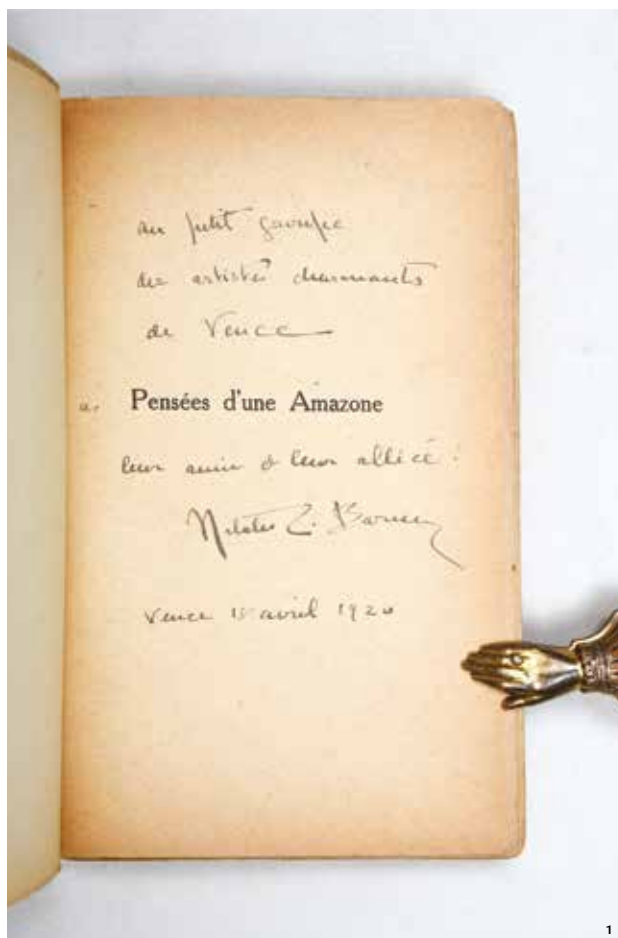 au petit groupe
des artistes charmants
de Vence
Pensées d'une Amazone
leur amie & leur alliée :
Natalie C. Barney
Vence avril 1920
1